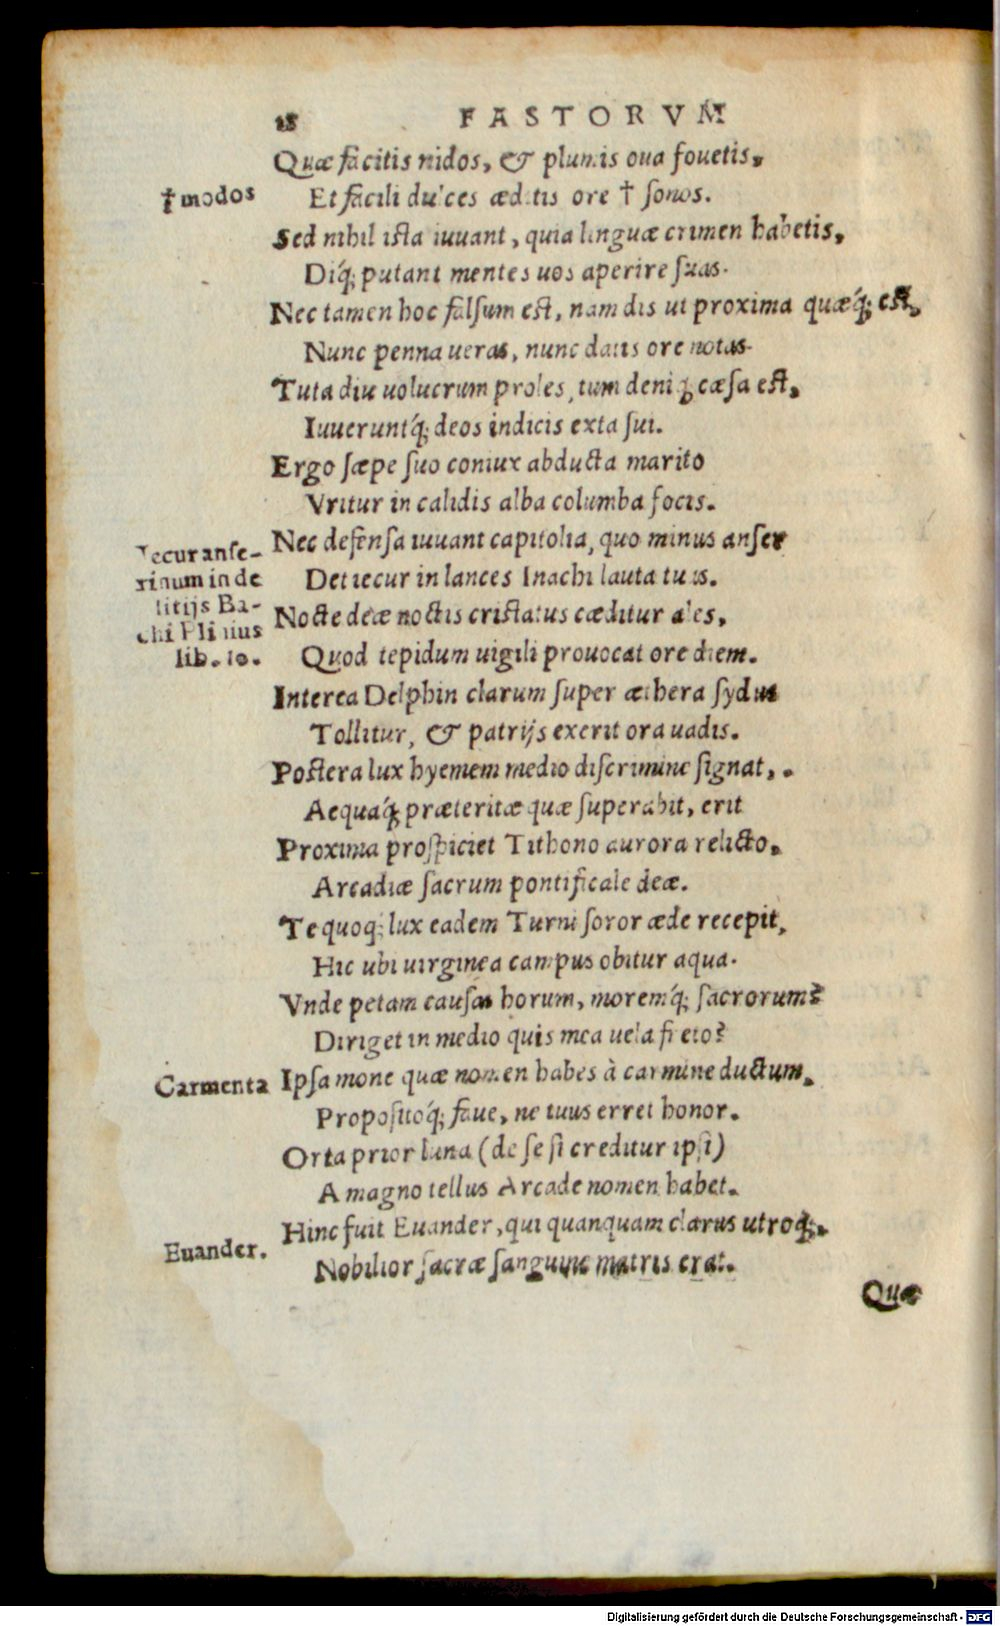 18 FASTORVM
Quæ facitis nidos, & plumis oua fouetis,
†modos
Et facili dulces æditis ore † sonos.
Sed nihil ista iuuant, quia linguæ crimen habetis,
Diq́; putant mentes uos aperire suas.
Nec tamen hoc falsum est, nam dis ut proxima quæq́; est,
Nunc penna ueras, nunc datis ore notas.
Tuta diu uolucrum proles, tum deniq; cæsa est,
Iuueruntq́; deos indicis exta sui.
Ergo sæpe suo coniux abducta marito
Vritur in calidis alba columba focis.
Iecur anse-
rinum in de
litijs Ba-
chi Plinius
lib. 10.
Nec defensa iuuant capitolia, quo minus anser
Det iecur in lances Inachi lauta tuis.
Nocte deæ noctis cristatus cæditur ales,
Quod tepidum uigili prouocat ore diem.
Interea Delphin clarum super æthera sydus
Tollitur, & patrijs exerit ora uadis.
Postera lux hyemem medio discrimine signat, .
Aequaq́; præteritæ quæ superabit, erit
Proxima prospiciet Tithono aurora relicto,
Arcadiæ sacrum pontificale deæ.
Te quoq; lux eadem Turni soror æde recepit,
Hic ubi uirginea campus obitur aqua.
Vnde petam causas horum, moremq́; sacrorum?
Diriget in medio quis mea uela freto?
Carmenta
Ipsa mone quæ nomen habes à carmine ductum,
Propositoq́; faue, ne tuus erret honor.
Orta prior luna (de se si creditur ipsi)
A magno tellus Arcade nomen habet.
Hinc fuit Euander, qui quanquam clarus utroq;,
Euander.
Nobilior sacræ sanguine matris erat.
Quæ
Digitalisierung gefördert durch die Deutsche Forschungsgemeinschaft - DFG